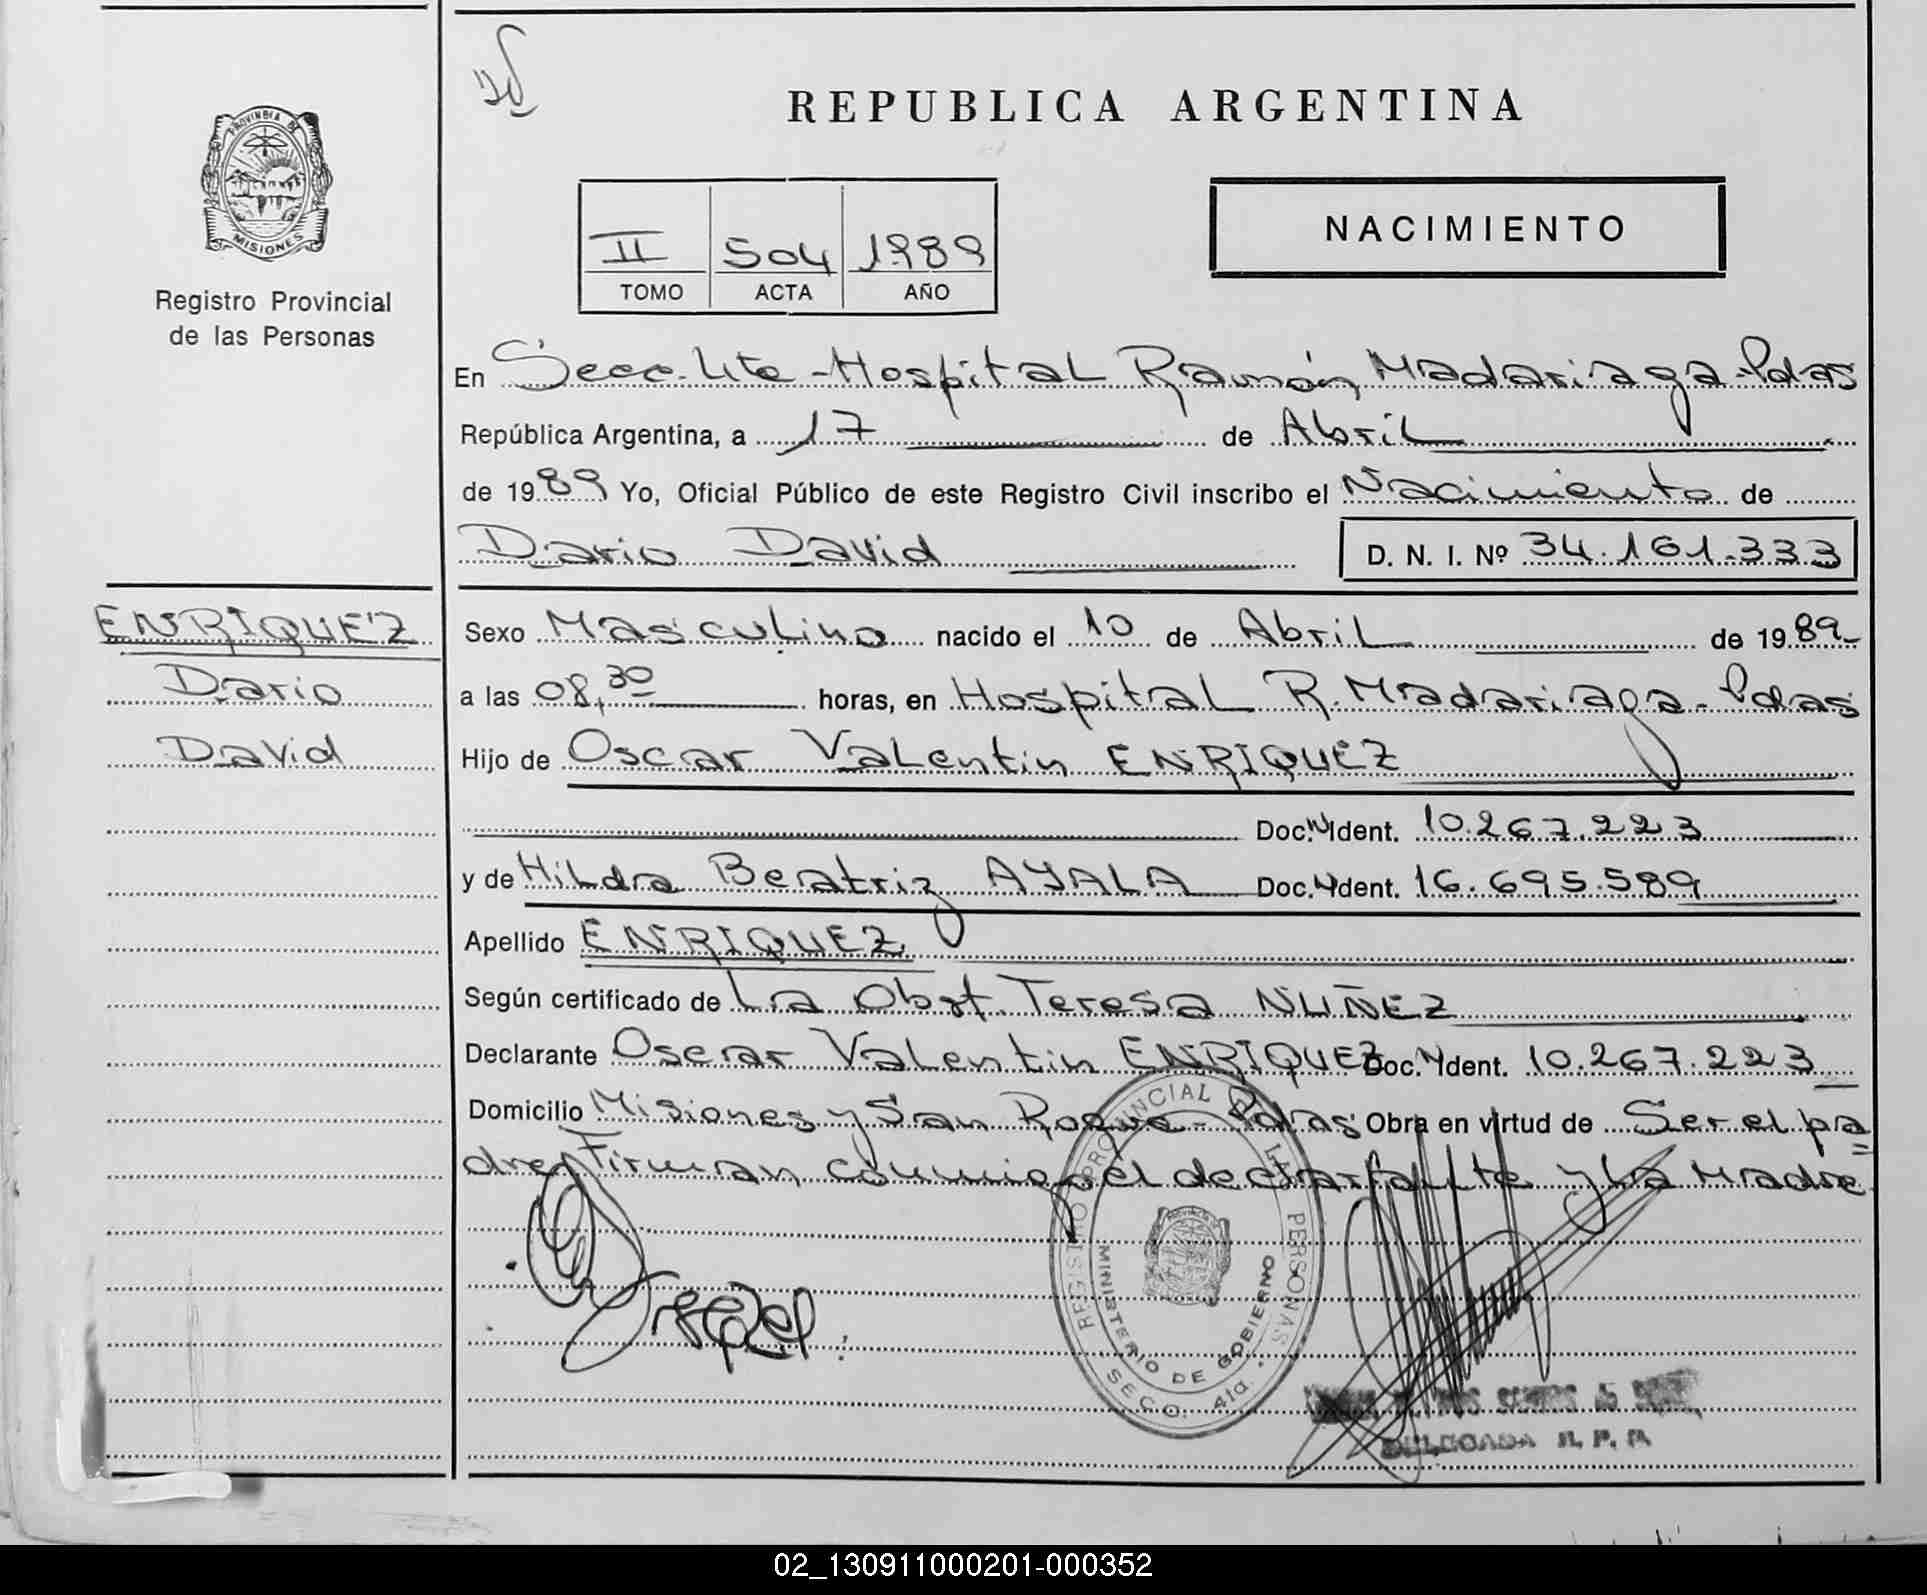 REPUBLICA ARGENTINA
PROVINCIA DE
MISIONES
Registro Provincial
de las Personas
II 504 1989
TOMO ACTA AÑO
NACIMIENTO
En Secc. 4ta - Hospital Ramón Madariaga - Pdas
República Argentina, a 17 de Abril
de 1989 Yo, Oficial Público de este Registro Civil inscribo el Nacimiento de
Dario David D. N. I. Nº 34.161.333
ENRIQUEZ
Dario
David
Sexo Masculino nacido el 10 de Abril de 1989
a las 08,30 horas, en Hospital R. Madariaga - Pdas
Hijo de Oscar Valentin ENRIQUEZ
Doc. N Ident. 10.267.223
y de Hilda Beatriz AYALA Doc. N Ident. 16.695.589
Apellido ENRIQUEZ
Según certificado de La Obst. Teresa NUÑEZ
Declarante Oscar Valentin ENRIQUEZ Doc. N Ident. 10.267.223
Domicilio Misiones y San Roque - Pdas Obra en virtud de Ser el pa
dre, Firman conmigo el declarante y la Madre
REGISTRO PROVINCIAL DE LAS PERSONAS
MINISTERIO DE GOBIERNO
SECC. 4ta.
DELEGADA R. P. P.
02_130911000201-000352